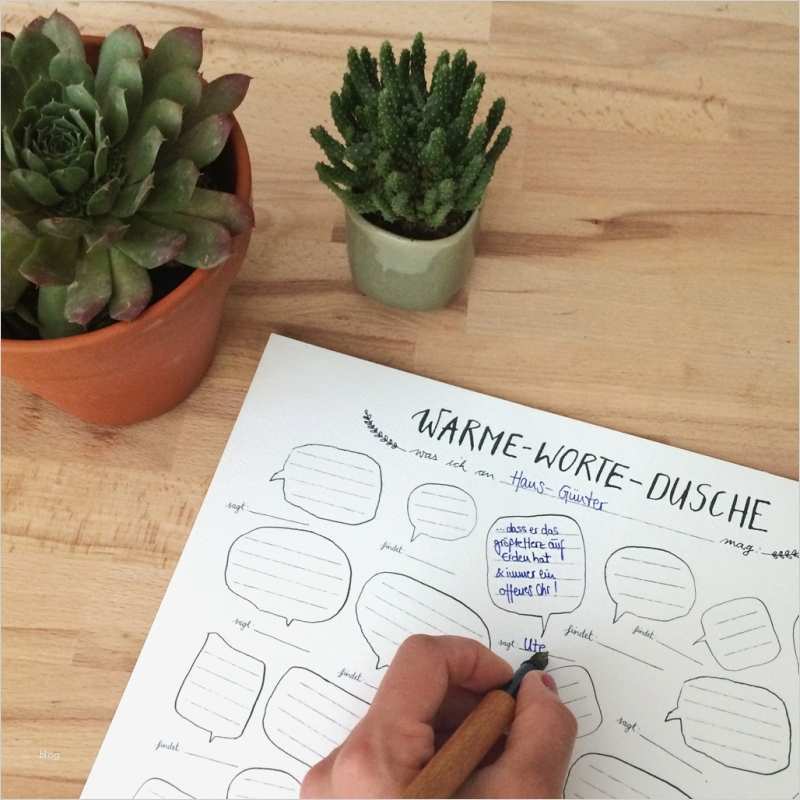 WARME-WORTE-DUSCHE
was ich an Hans-Günter mag:
...dass er das
größte Herz auf
Erden hat
& immer ein
offenes Ohr!
sagt
findet
sagt Ute
findet
findet
sagt
findet
sagt
findet
blog